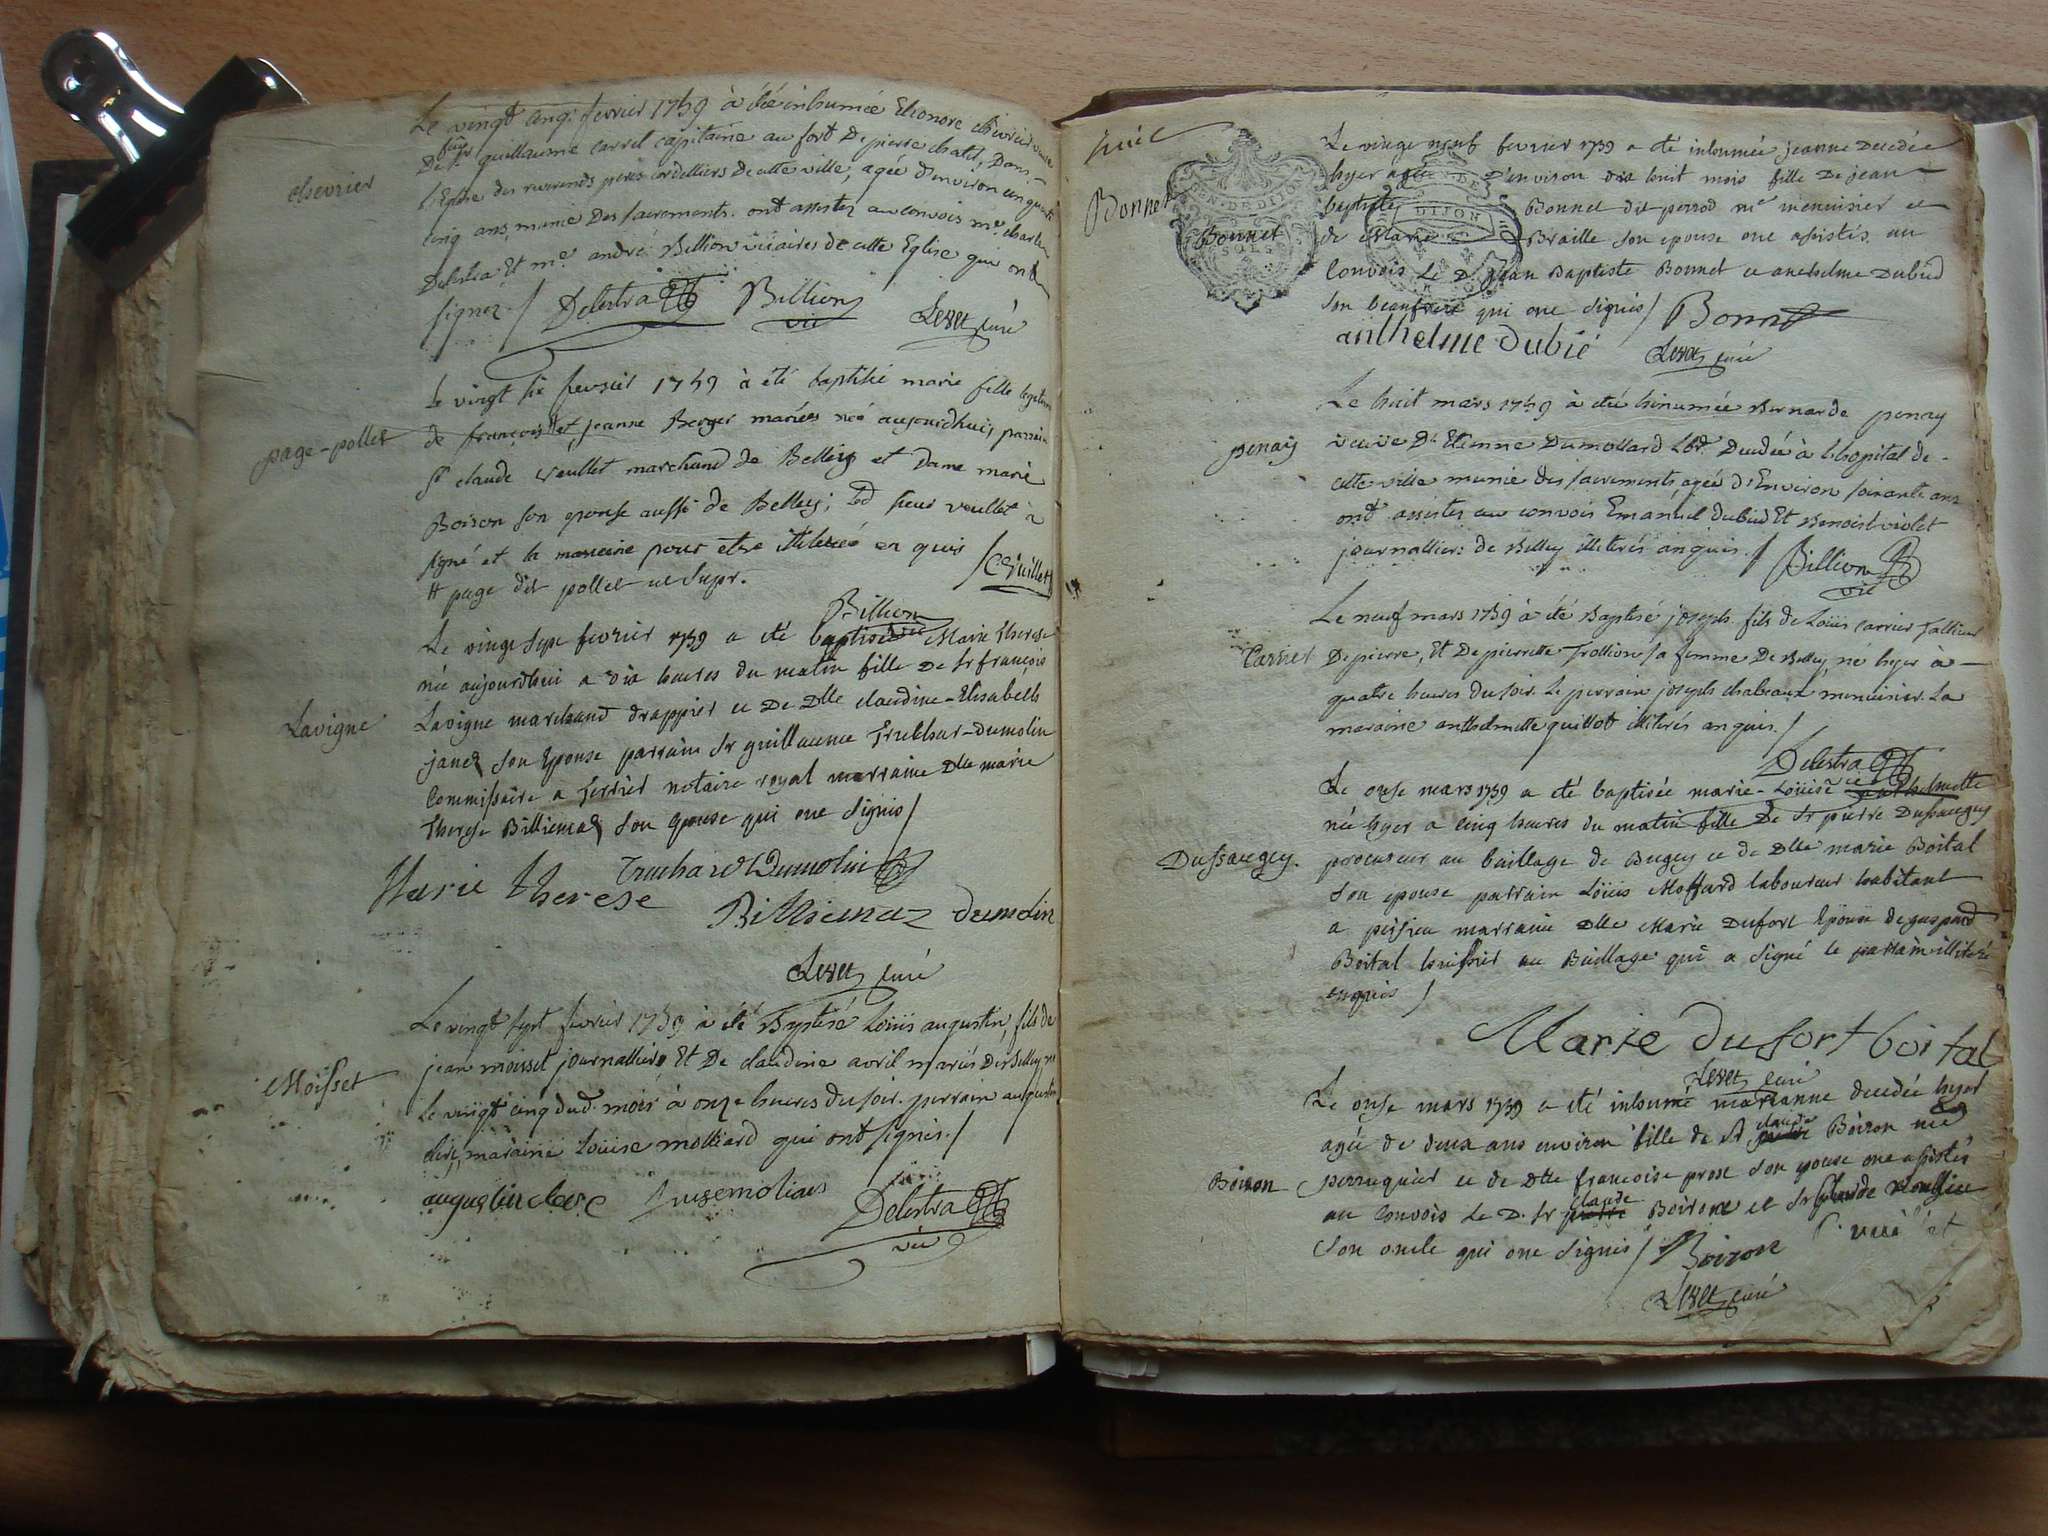 chevrier
Le vingt cinq fevrier 1759 à été inhumée Eleonore chevrier veuve
De feu Sr guillaume carrel capitaine au fort De pierre chatel, Dans
l'Eglise des reverends peres cordelliers De cette ville, agée d'environ cinquante
cinq ans, munie Des sacrements. ont assister au convois me. charles
Delestra Et me. andré Billion vicaires de cette Eglise qui ont
signez. / Delestra Billion
vic Levet curé
page-pollet
Le vingt six fevrier 1759 à été baptisé marie fille legitime
de françois # et jeanne Berger mariées neé aujourdhui, parrain
Sr claude veullet marchand de Belley et Dame marie
Boiron son epouse aussi de Belley; led sieur veullet à
signé et la maraine pour etre illiterée en quis / C Veullet
# page dit pollet ut supr.
Billion
vic
Lavigne
Le vingt sept fevrier 1759 a eté baptisée Marie Therese
née aujourdhui a dix heures du matin fille De Sr françois
Lavigne marchand drappier et De Dlle claudine-Elisabeth
janez son Epouse parrain Sr guillaume Truchar-Dumolin
Commissaire a Terrier notaire royal marraine Dlle marie
Therese Billiemaz son Epouse qui ont signés /
Truchard Dumolin
Marie therese
Billiemaz dumolin
Levet curé
Moisset
Le vingt sept fevrier 1759 à été Baptisé Loüis augustin, fils de
jean moisset journallier, Et De claudine avril mariés De Belley, né
Le vingt cinq dud. mois à onze heures du soir. perrain augustin
clerc, maraine Loüise molliard qui ont signés. /
augustin clerc Luise moliars
Delestra
vic
Bonnet
Bonnet
GEN. DE DIJON
SOLS
DIJON
Le vingt neuf fevrier 1759 a eté inhumée jeanne Decedée
hyer agée D'environ dix huit mois fille De jean
baptiste Bonnet dit perrod me menuisier et
de Marie Braille son epouse ont assistés au
Convois Le D. jean Baptiste Bonnet et anthelme Dubied
son beaufrere qui ont signés / Bonnet
anthelme dubié
Levet curé
penay
Le huit mars 1759 à eté hinumée Bernarde penay
veuve Dt Etienne Dumollard Lbr. Decedée à l'hopital de
cette ville munie des sacrements, agée D'Environ soixante ans
ont assister au convois Emanuel dubied Et Benoist violet
journalliers de Belley illiterés anquis. / Billion
vic
Carrier
Le neuf mars 1759 à été Baptisé joseph fils de Loüis carrier Tallieur
De pierre, Et De pierrette Trollion sa femme De Belley né hyer à
quatre heures du soir. Le perrain joseph chabeaux menuisier. La
maraine anthelmette quillot illiterés anquis. /
Delestra
vic
Dussaugey.
Le onse mars 1759 a eté baptisée marie-Loüise anthelmette
née hyer a cinq heures du matin fille De Sr pierre Dussaugey
procureur au baillage de Bugey et de Dlle marie Boital
son epouse parrain Loüis Moffard laboureur habitant
a peissieu marraine Dlle Marie Dufort Epouse de gaspard
Boital huissier au Baillage qui a signé le parrain illiteré
enquis /
Marie dufort boital
Levet curé
Boiron
Le onse mars 1759 a eté inhumé marianne decedée hyer
agée de deux ans environ fille de Sr claude Boiron me
perruquier et de Dlle francoise prost son epouse ont assistés
au Convois Le D. Sr claude Boiron et Sr
son oncle qui ont signés / Boiron
Levet curé